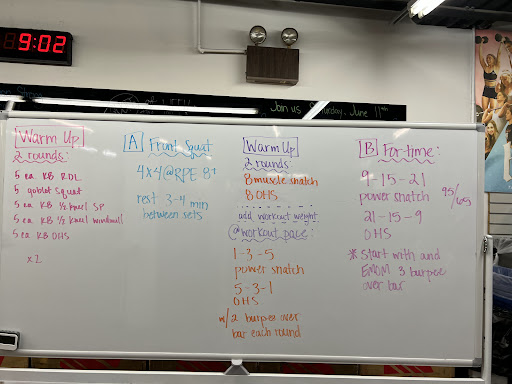 9:02
Join us Saturday, June 11th
Warm Up
2 rounds:
5 ea KB RDL
5 goblet squat
5 ea KB 1/2 kneel SP
5 ea KB 1/2 kneel windmill
5 ea KB OHS
x2
A Front Squat
4x4 @ RPE 8+
rest 3-4 min
between sets
Warm Up
2 rounds:
8 muscle snatch
8 OHS
add workout weight
@workout pace:
1-3-5
power snatch
5-3-1
OHS
w/ 2 burpee over
bar each round
B For time:
9-15-21
power snatch 95/65
21-15-9
OHS
* Start with and
EMOM 3 burpee
over bar